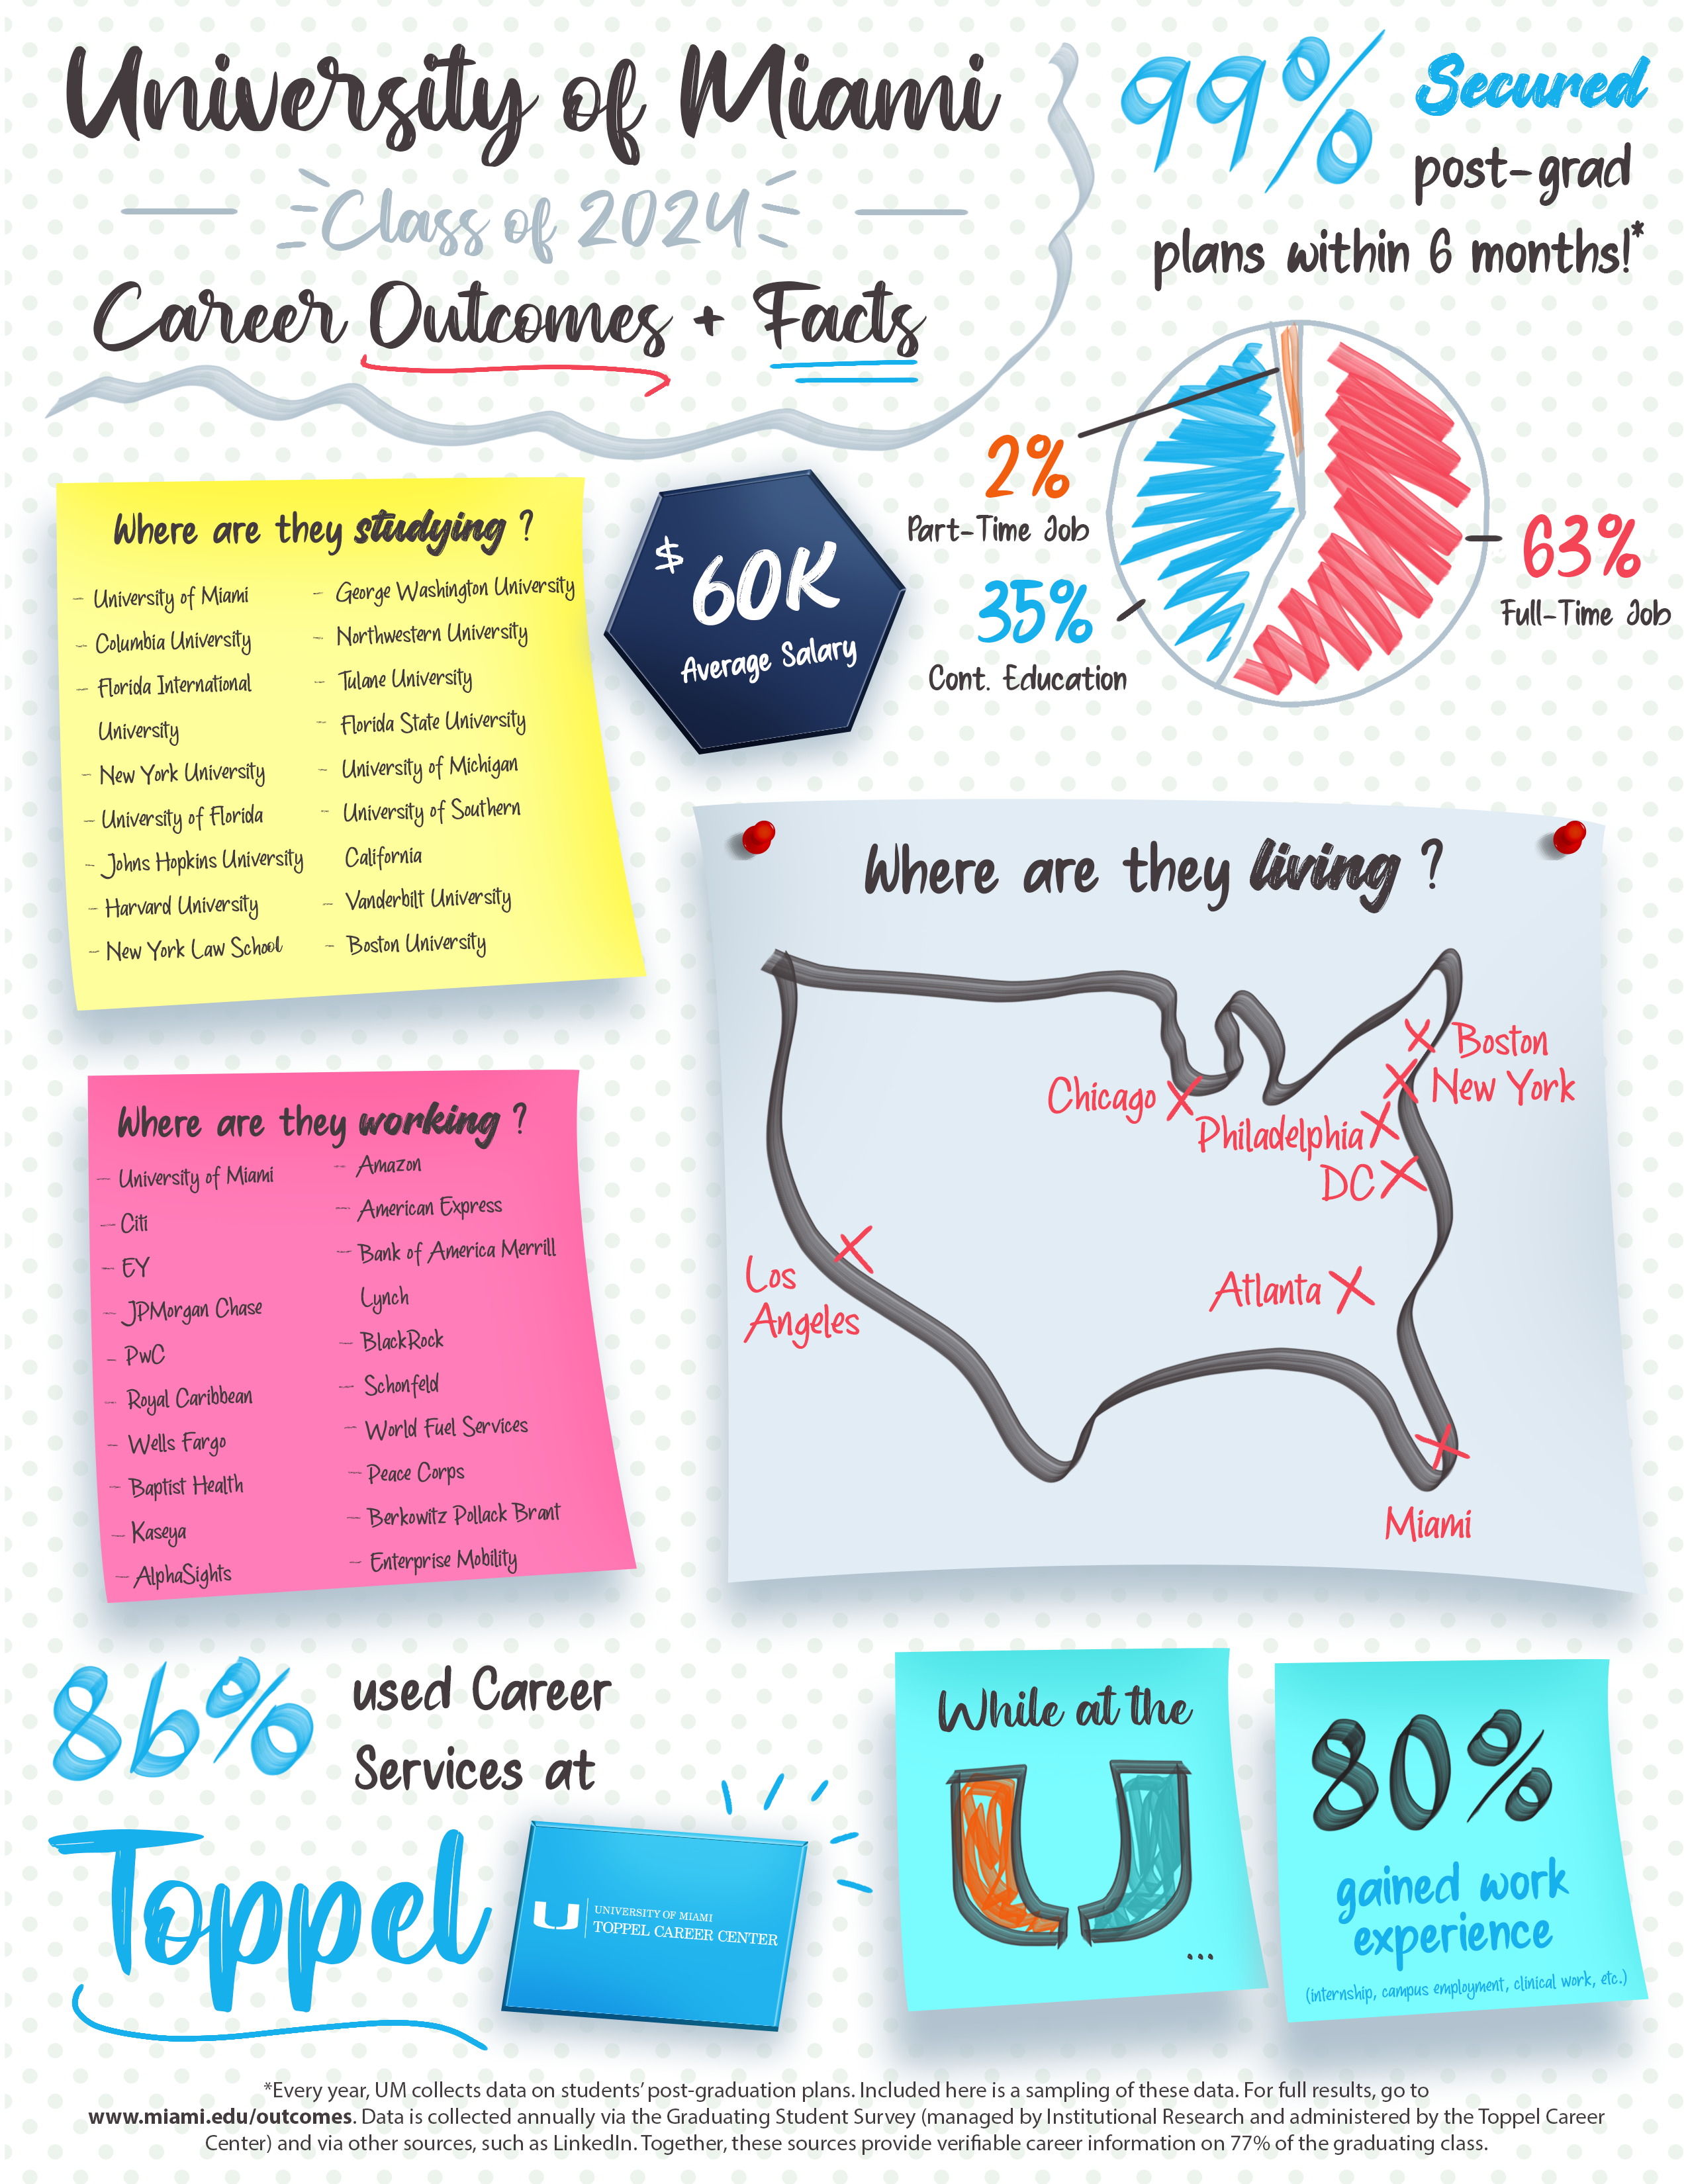 University of Miami
Class of 2024
Career Outcomes + Facts
99% Secured
post-grad
plans within 6 months!*
2%
Part-Time Job
35%
Cont. Education
63%
Full-Time Job
$60K
Average Salary
Where are they studying?
– University of Miami
– Columbia University
– Florida International
University
– New York University
– University of Florida
– Johns Hopkins University
– Harvard University
– New York Law School
– George Washington University
– Northwestern University
– Tulane University
– Florida State University
– University of Michigan
– University of Southern
California
– Vanderbilt University
– Boston University
Where are they living?
Boston
New York
Chicago
Philadelphia
DC
Los
Angeles
Atlanta
Miami
Where are they working?
– University of Miami
– Citi
– EY
– JPMorgan Chase
– PwC
– Royal Caribbean
– Wells Fargo
– Baptist Health
– Kaseya
– AlphaSights
– Amazon
– American Express
– Bank of America Merrill
Lynch
– BlackRock
– Schonfeld
– World Fuel Services
– Peace Corps
– Berkowitz Pollack Brant
– Enterprise Mobility
86% used Career
Services at
Toppel
UNIVERSITY OF MIAMI
TOPPEL CAREER CENTER
While at the
U
...
80%
gained work
experience
(internship, campus employment, clinical work, etc.)
*Every year, UM collects data on students' post-graduation plans. Included here is a sampling of these data. For full results, go to
www.miami.edu/outcomes. Data is collected annually via the Graduating Student Survey (managed by Institutional Research and administered by the Toppel Career
Center) and via other sources, such as LinkedIn. Together, these sources provide verifiable career information on 77% of the graduating class.